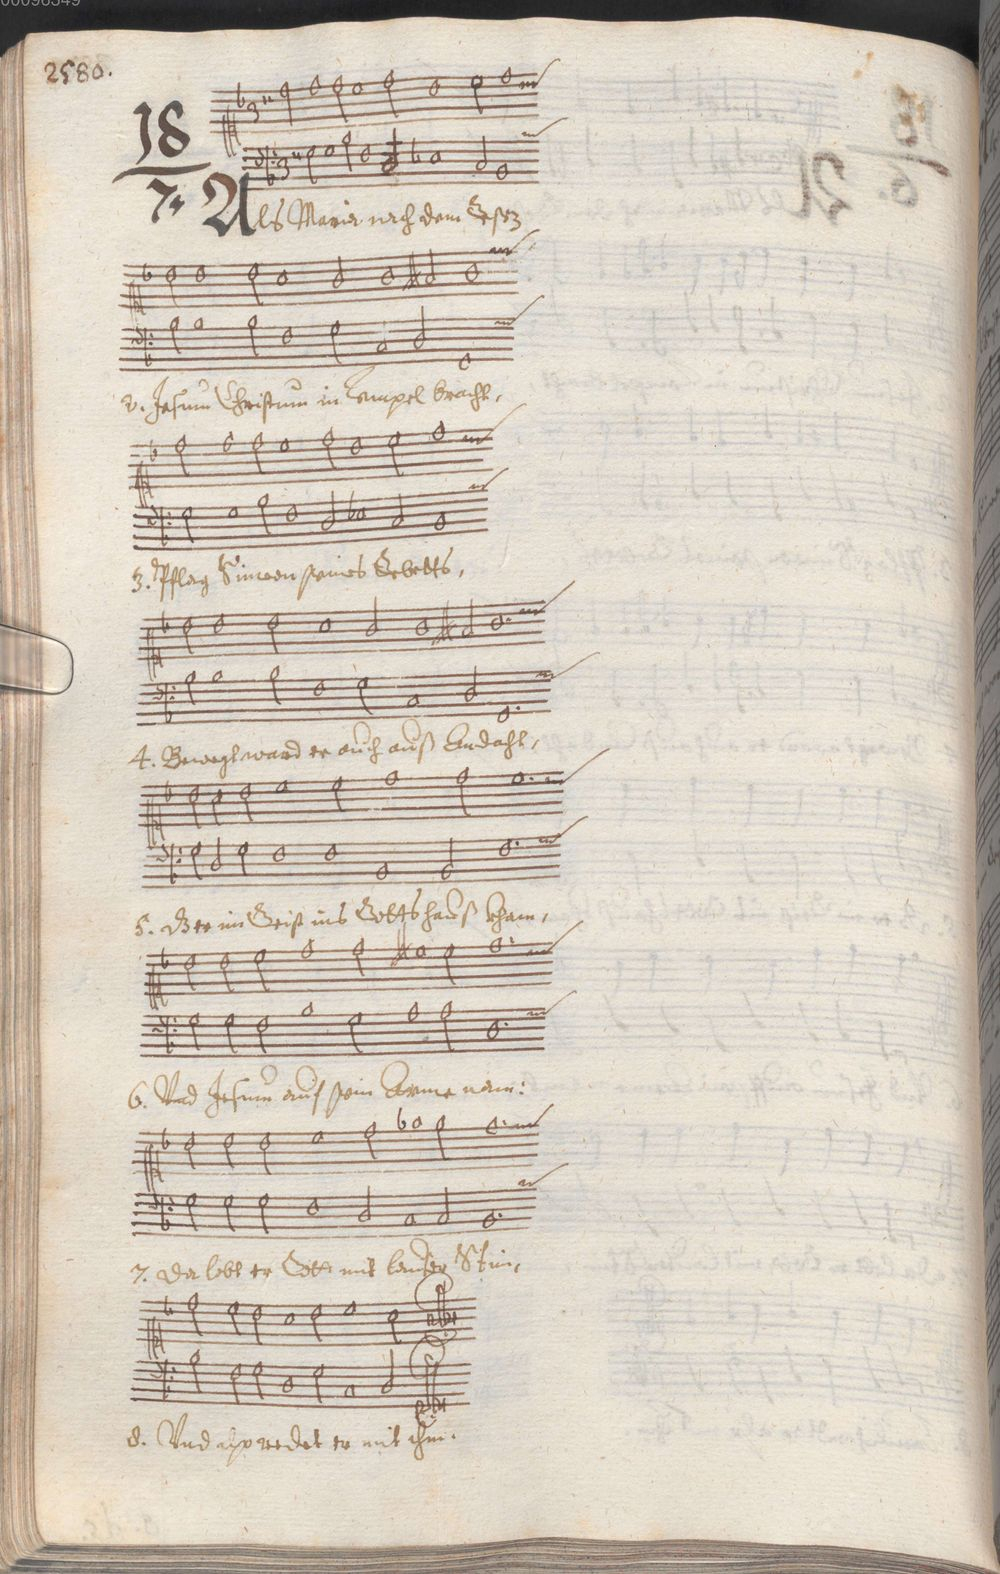 00098349
2580.
18
7.
Als Maria nach dem Gesez
2. Jesum Christum in Tempel bracht,
3. Pflag Simeon seines Gebetts,
4. Bewegt ward er auch auß Andacht,
5. Der im Geist ins Gottshauß kham,
6. Und Jesum auf sein Arme nam:
7. Da lobt er Gott mit lauter Stim,
8. Und also redet er mit ihm.